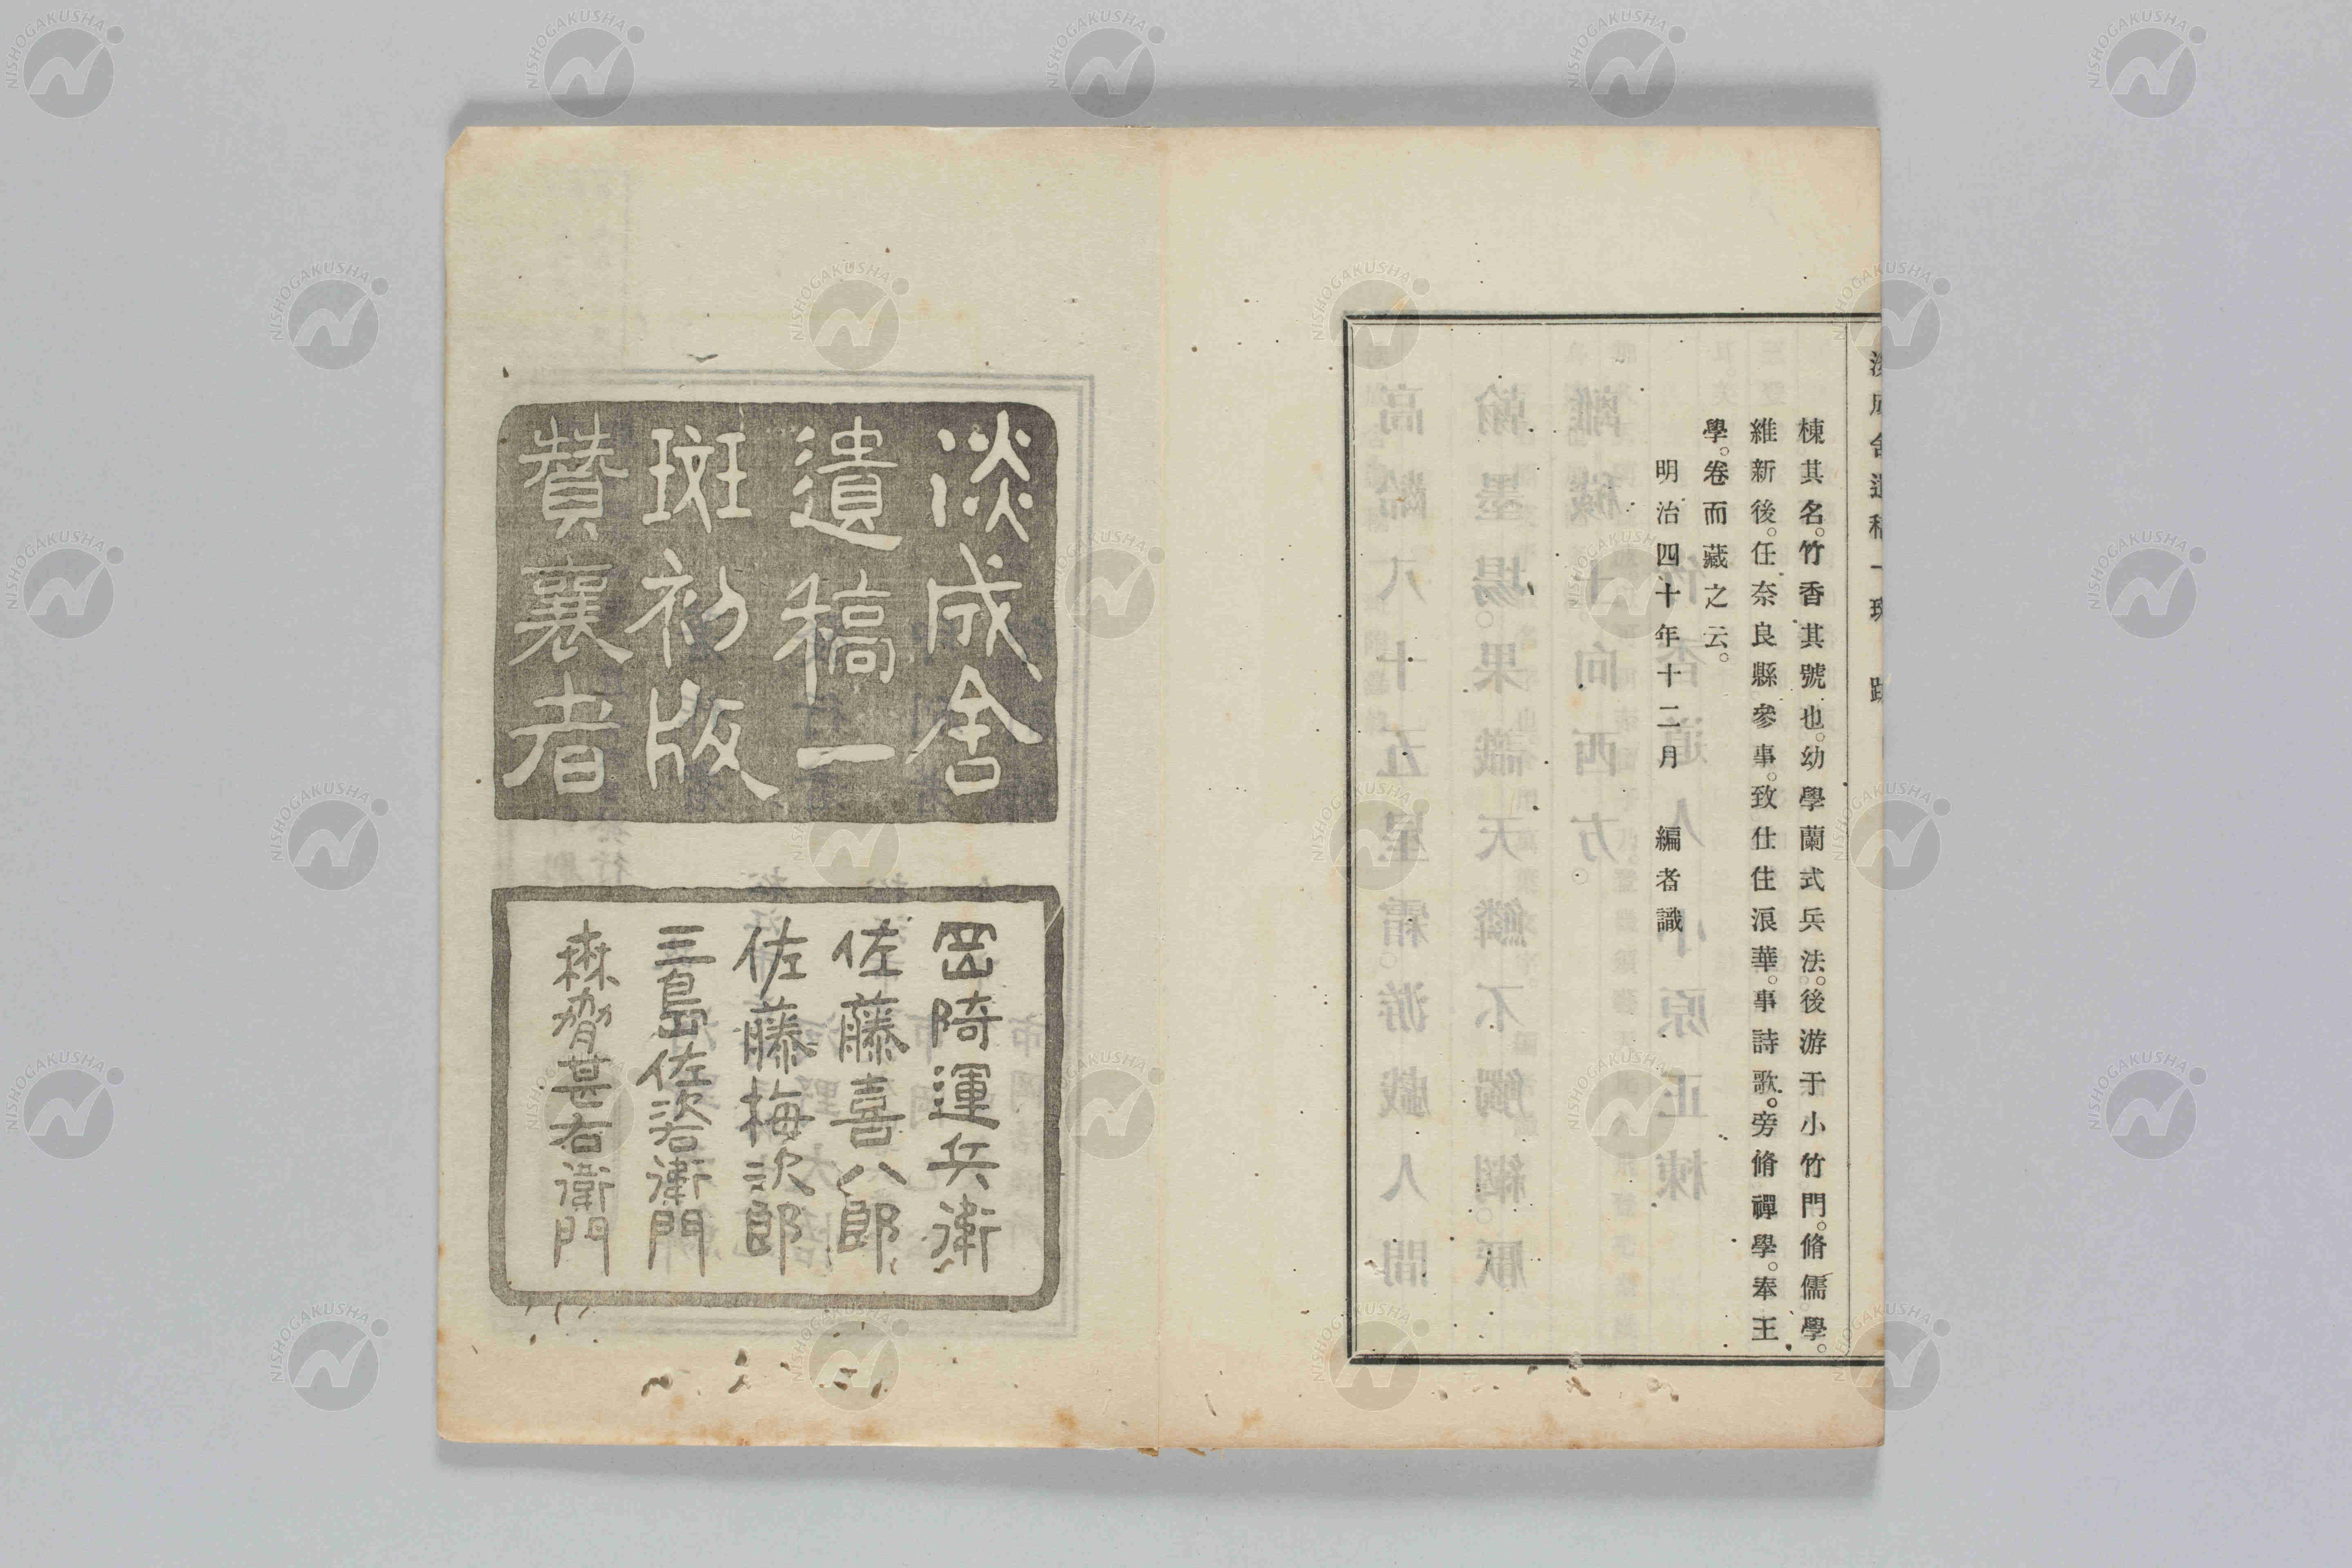 棟其名。竹香其號也。幼學蘭式兵法。後游于小竹門。脩儒學。
維新後。任奈良縣參事。致仕住浪華。事詩歌。旁脩禪學。奉王
學。卷而藏之云。
明治四十年十二月 編者識
淡成舍
遺稿一
斑初版
贊襄者
岡﨑運兵衛
佐藤喜八郎
佐藤梅次郎
三島佐次右衛門
森脇甚右衛門
NISHOGAKUSHA